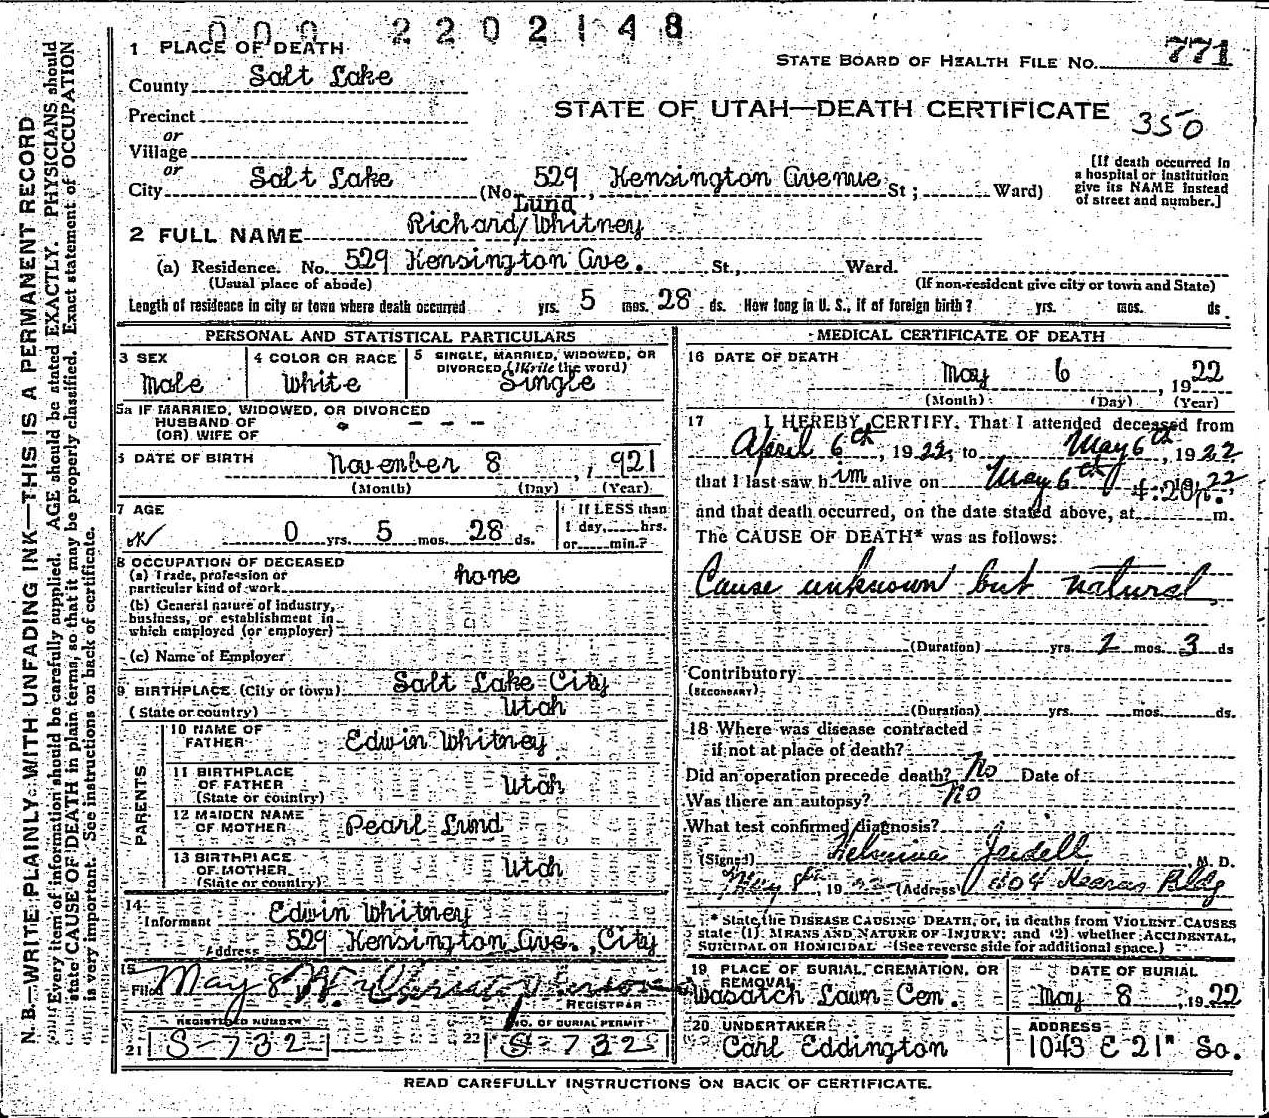 000 2202148
1 PLACE OF DEATH
STATE BOARD OF HEALTH FILE NO. 771
County Salt Lake
STATE OF UTAH—DEATH CERTIFICATE 350
Precinct
or
Village
or
City Salt Lake (No. 529, Kensington Avenue St; Ward)
[If death occurred in
a hospital or institution
give its NAME instead
of street and number.]
Lund
2 FULL NAME Richard/Whitney
(a) Residence. No. 529 Kensington Ave. St., Ward.
(Usual place of abode) (If non-resident give city or town and State)
Length of residence in city or town where death occurred yrs. 5 mos. 28 ds. How long in U. S., if of foreign birth? yrs. mos. ds.
PERSONAL AND STATISTICAL PARTICULARS
3 SEX
Male
4 COLOR OR RACE
White
5 SINGLE, MARRIED, WIDOWED, OR
DIVORCED (Write the word)
Single
5a IF MARRIED, WIDOWED, OR DIVORCED
HUSBAND OF - - -
(OR) WIFE OF
6 DATE OF BIRTH November 8, 1921
(Month) (Day) (Year)
7 AGE
0 yrs. 5 mos. 28 ds.
If LESS than
1 day, hrs.
or min.?
8 OCCUPATION OF DECEASED
(a) Trade, profession or
particular kind of work none
(b) General nature of industry,
business, or establishment in
which employed (or employer)
(c) Name of Employer
9 BIRTHPLACE (City or town) Salt Lake City
(State or country) Utah
PARENTS
10 NAME OF
FATHER Edwin Whitney
11 BIRTHPLACE
OF FATHER Utah
(State or country)
12 MAIDEN NAME
OF MOTHER Pearl Lund
13 BIRTHPLACE
OF MOTHER Utah
(State or country)
14
Informant Edwin Whitney
Address 529 Kensington Ave., City
15
Filed May 8
REGISTRAR
REGISTERED NUMBER
21 S-732
NO. OF BURIAL PERMIT
22 S-732
MEDICAL CERTIFICATE OF DEATH
16 DATE OF DEATH
May 6, 1922
(Month) (Day) (Year)
17 I HEREBY CERTIFY, That I attended deceased from
April 6th, 1922, to May 6th, 1922
that I last saw him alive on May 6th, 1922
and that death occurred, on the date stated above, at 4:20 p. m.
The CAUSE OF DEATH* was as follows:
Cause unknown but natural
(Duration) yrs. 2 mos. 3 ds
Contributory
(SECONDARY)
(Duration) yrs. mos. ds.
18 Where was disease contracted
if not at place of death?
Did an operation precede death? No Date of
Was there an autopsy? No
What test confirmed diagnosis?
(Signed) M. D.
May 8th, 1922 (Address) 404 Kearns Bldg
* State the DISEASE CAUSING DEATH, or, in deaths from VIOLENT CAUSES
state (1) MEANS AND NATURE OF INJURY; and (2) whether ACCIDENTAL,
SUICIDAL OR HOMICIDAL (See reverse side for additional space.)
19 PLACE OF BURIAL, CREMATION, OR
REMOVAL
Wasatch Lawn Cem.
DATE OF BURIAL
May 8 1922
20 UNDERTAKER
Carl Eddington
ADDRESS
1043 E 21" So.
READ CAREFULLY INSTRUCTIONS ON BACK OF CERTIFICATE.
N. B.—WRITE PLAINLY, WITH UNFADING INK—THIS IS A PERMANENT RECORD
Every item of information should be carefully supplied. AGE should be stated EXACTLY. PHYSICIANS should
state CAUSE OF DEATH in plain terms, so that it may be properly classified. Exact statement of OCCUPATION
is very important. See instructions on back of certificate.